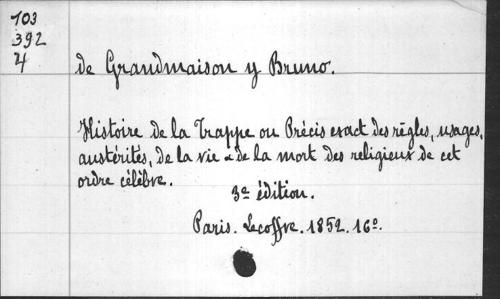 103
392
4
de Grandmaison y Bruno.
Histoire de la Trappe ou Précis exact des règles, usages,
austérités, de la vie & de la mort des religieux de cet
ordre célèbre.
3e édition.
Paris. Lecoffre. 1852. 16o.